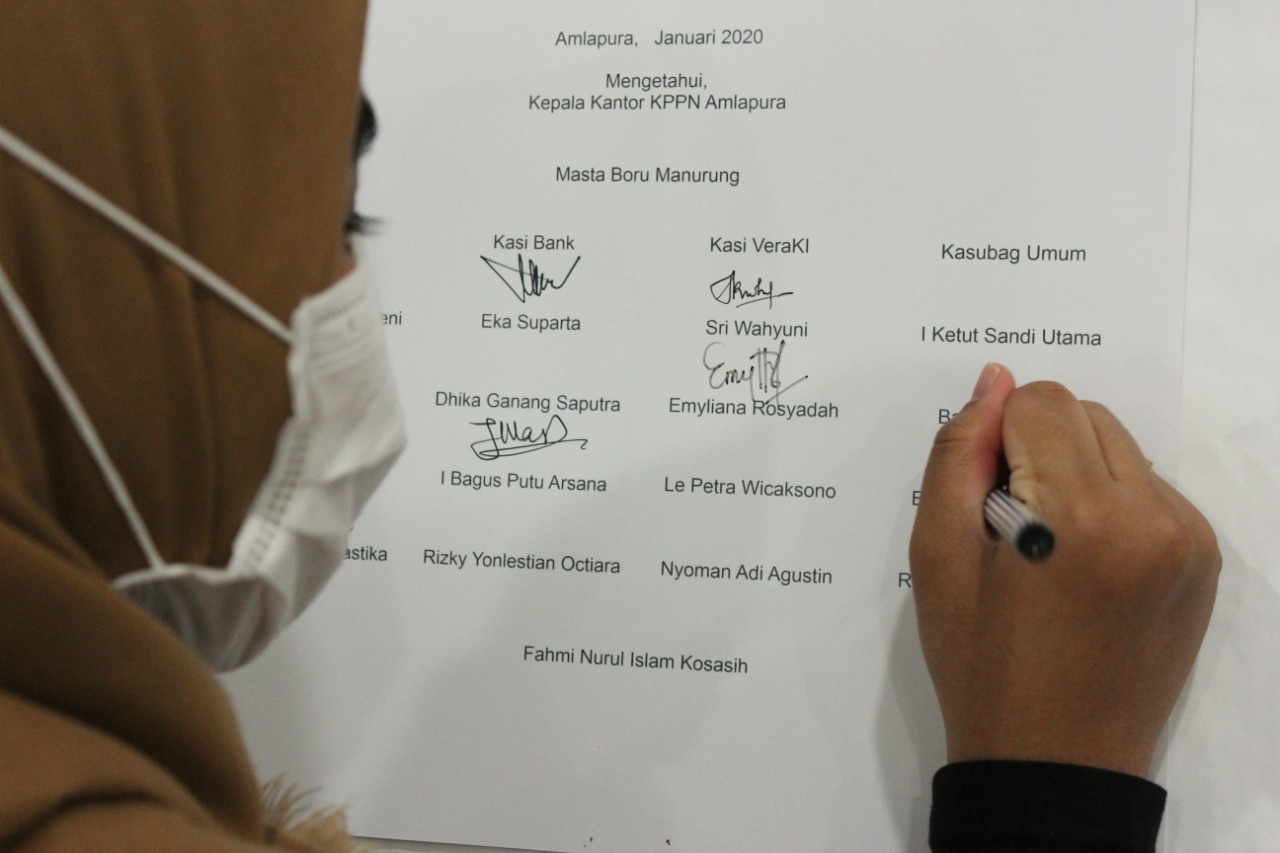 Amlapura, Januari 2020
Mengetahui,
Kepala Kantor KPPN Amlapura
Masta Boru Manurung
Kasi Bank Kasi VeraKI Kasubag Umum
eni Eka Suparta Sri Wahyuni I Ketut Sandi Utama
Dhika Ganang Saputra Emyliana Rosyadah
I Bagus Putu Arsana Le Petra Wicaksono
astika Rizky Yonlestian Octiara Nyoman Adi Agustin
Fahmi Nurul Islam Kosasih